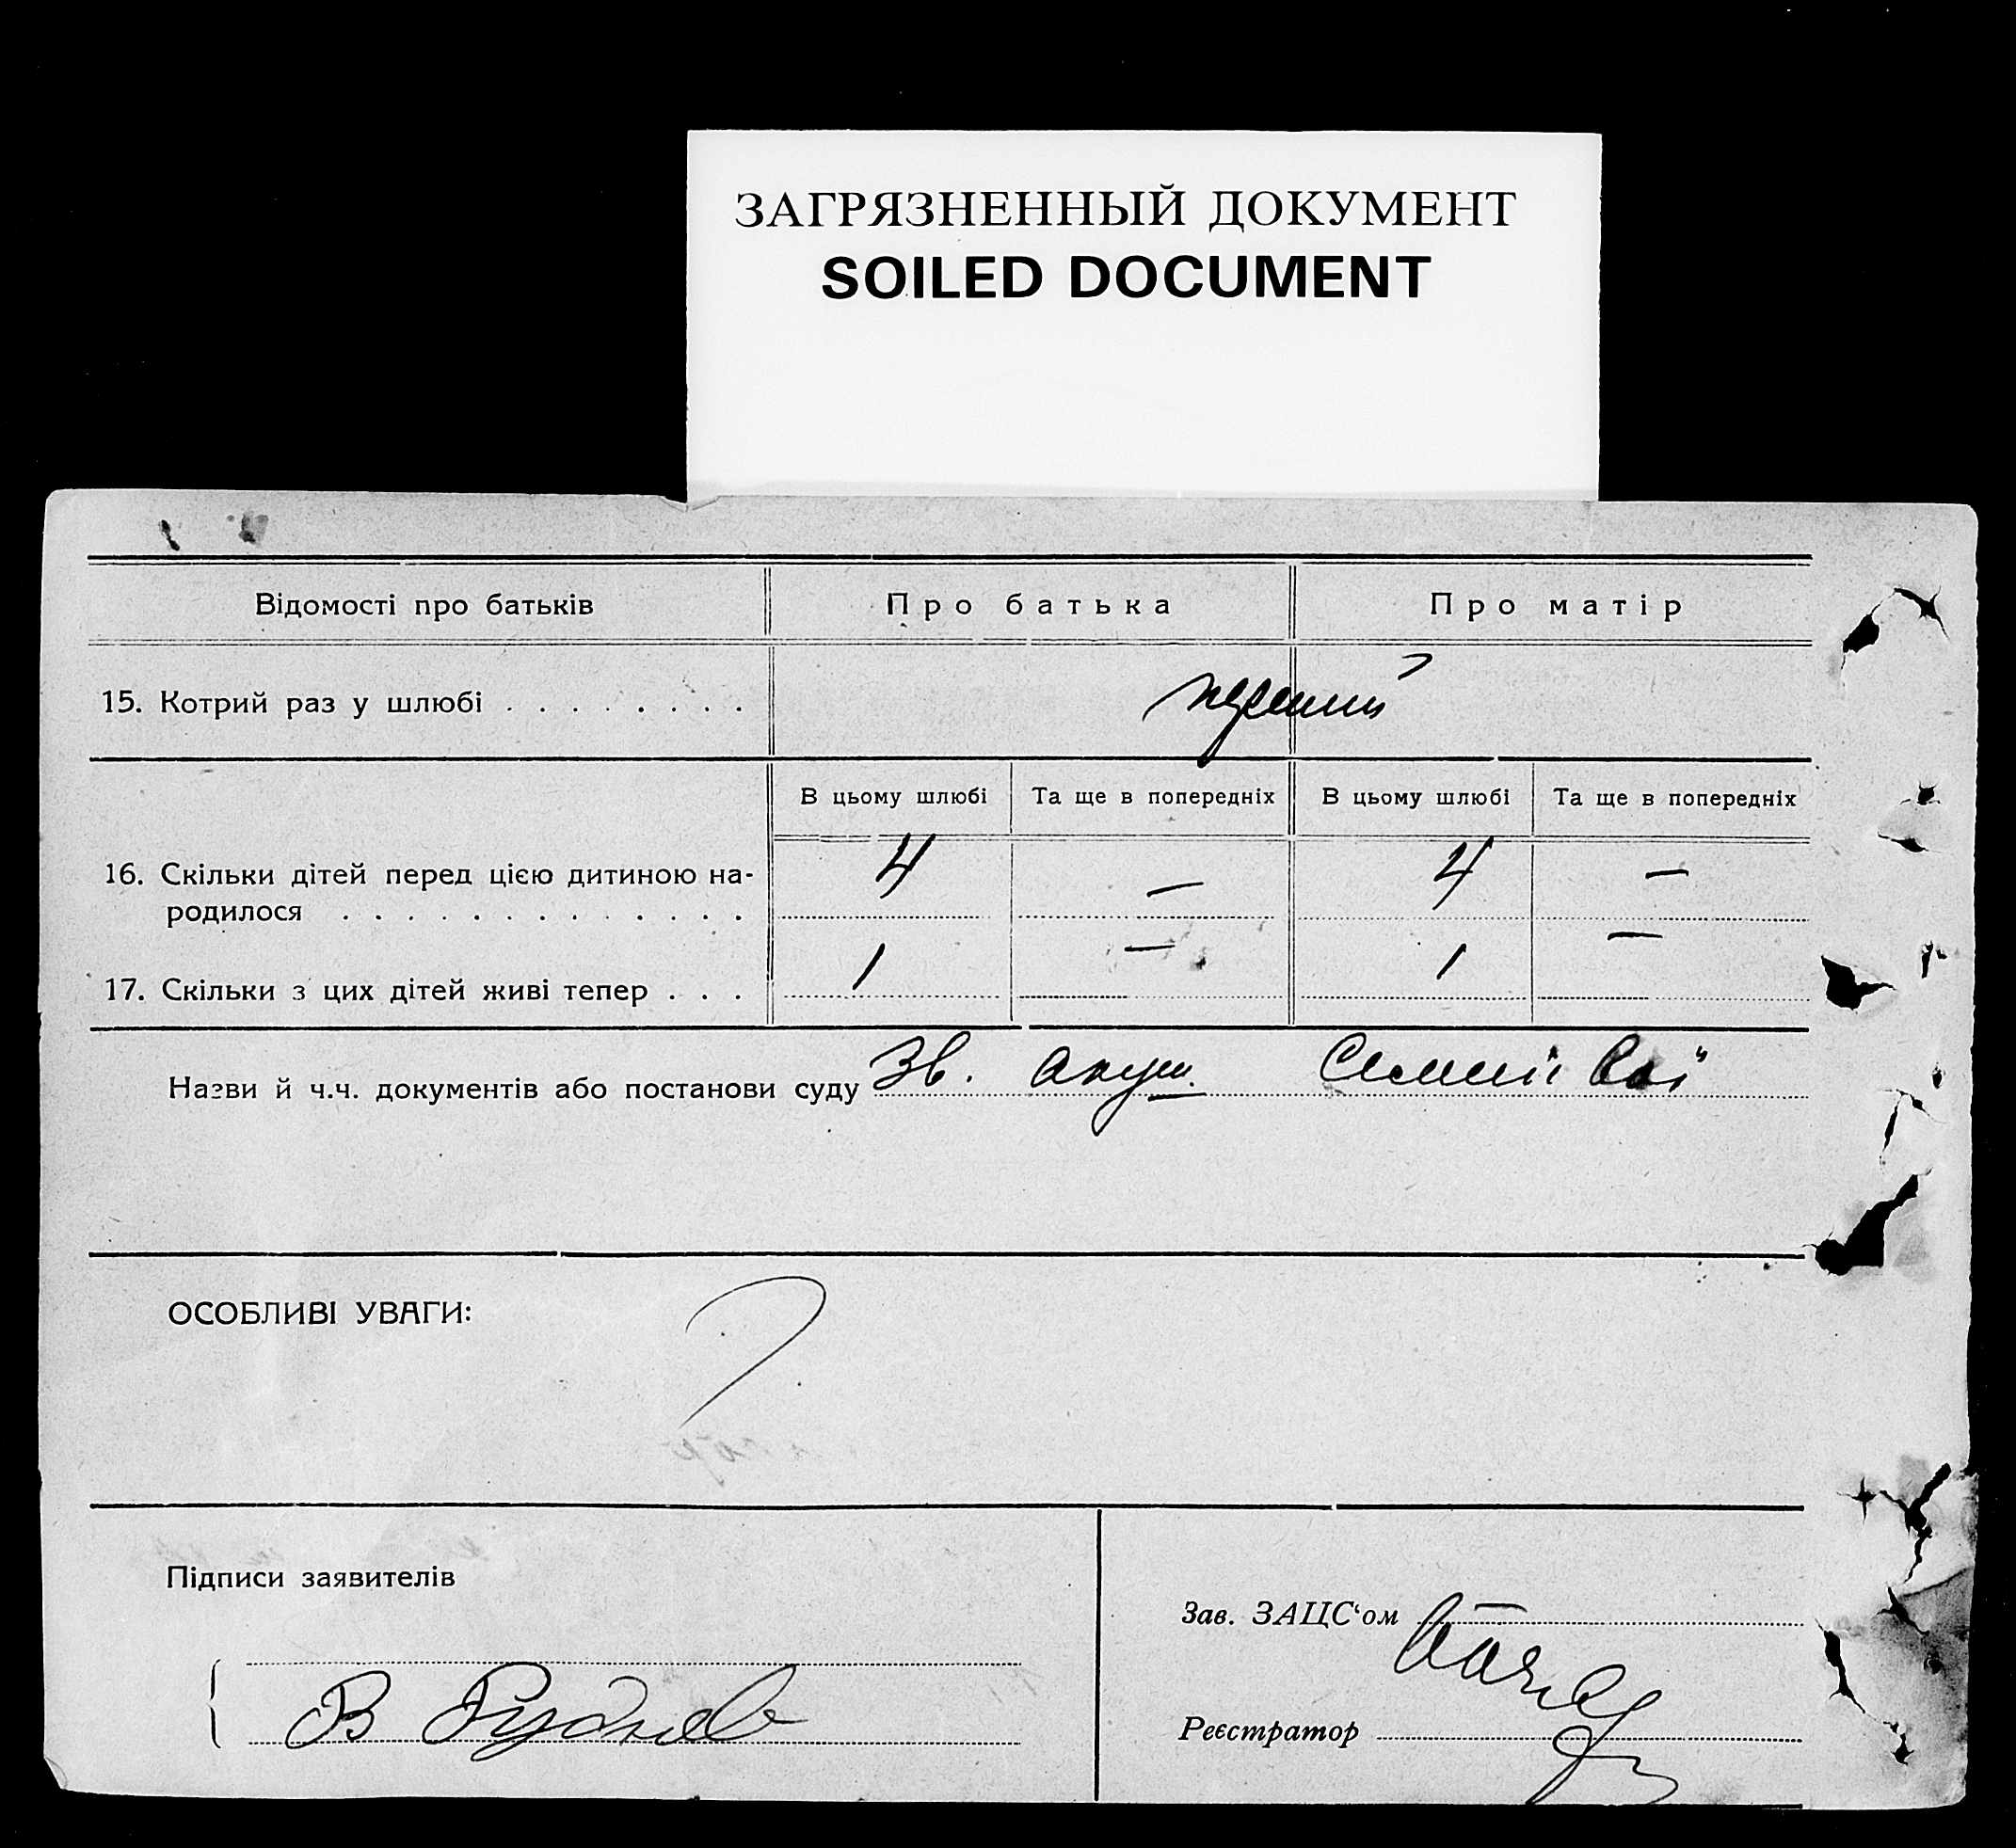 ЗАГРЯЗНЕННЫЙ ДОКУМЕНТ
SOILED DOCUMENT
Відомості про батьків Про батька Про матір
15. Котрий раз у шлюбі . . . . . . . . перший
В цьому шлюбі Та ще в попередніх В цьому шлюбі Та ще в попередніх
16. Скільки дітей перед цією дитиною на-
родилося . . . . . . . . . . . . . 4 — 4 —
17. Скільки з цих дітей живі тепер . . . 1 — 1 —
Назви й ч.ч. документів або постанови суду Зв. акуш.
ОСОБЛИВІ УВАГИ:
Підписи заявителів
Зав. ЗАЦС‘ом
В Руднев
Реєстратор